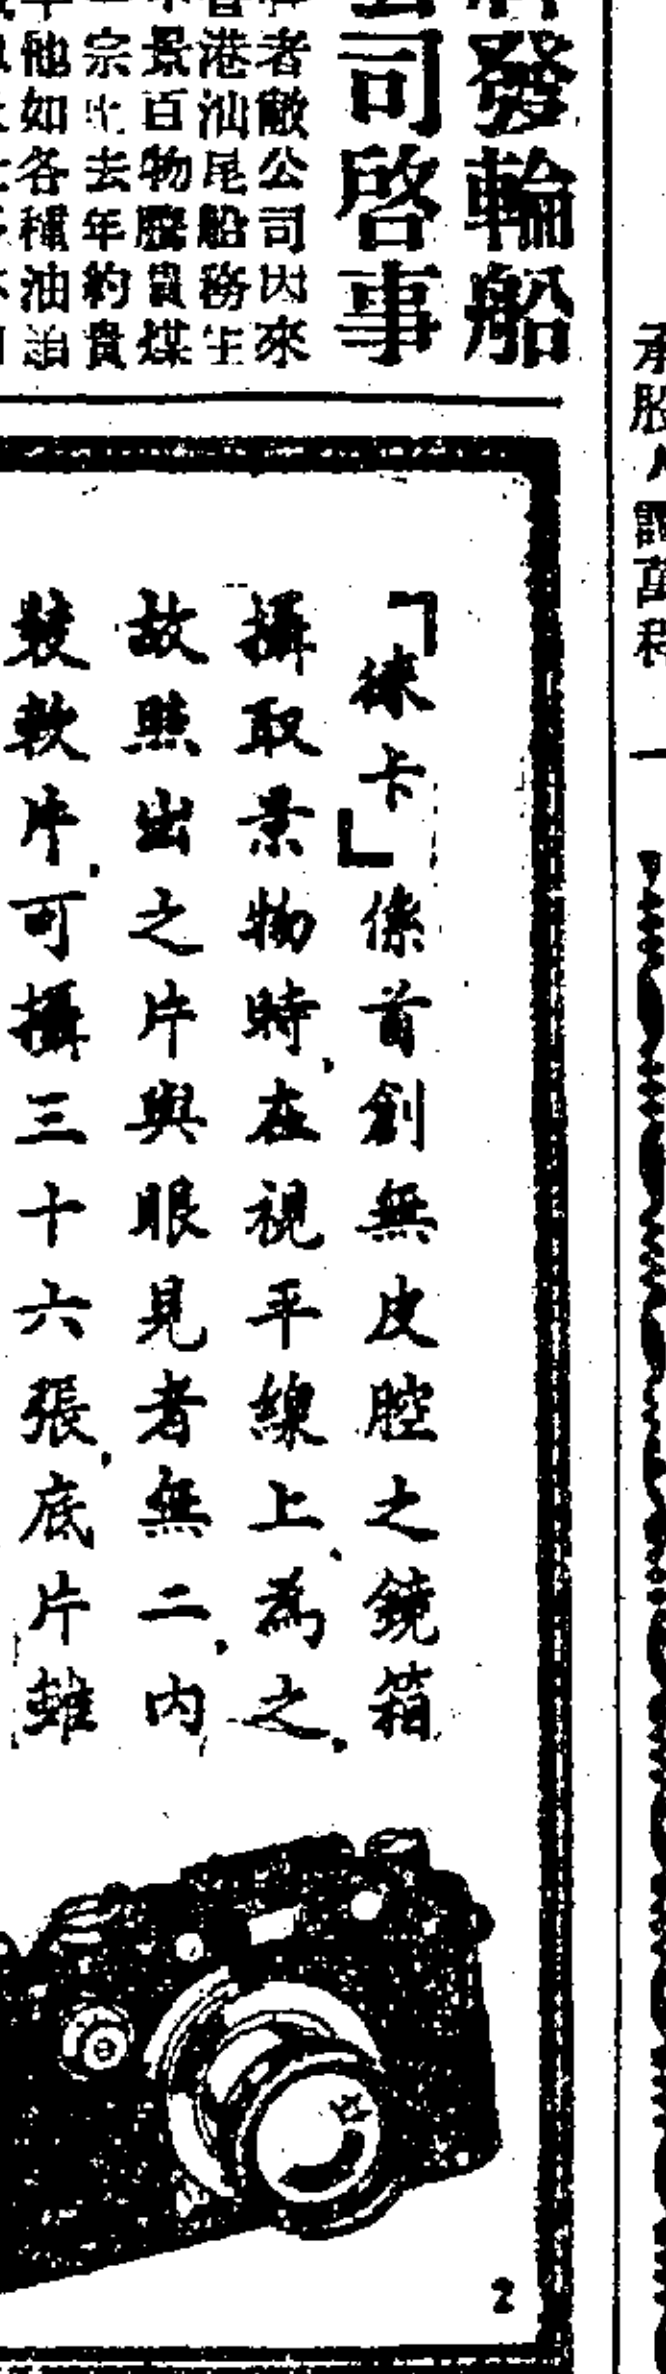 發輪船
司啓事
者敝公司因來
港汕尾船務生
景百物騰貴煤
宗 去年約貴
他如各種油
「徠卡」係首創無皮腔之鏡箱
攝取景物時，在視平線上，為之，
故照出之片與眼見者無二，内
裝軟片，可攝三十六張，底片雖
2